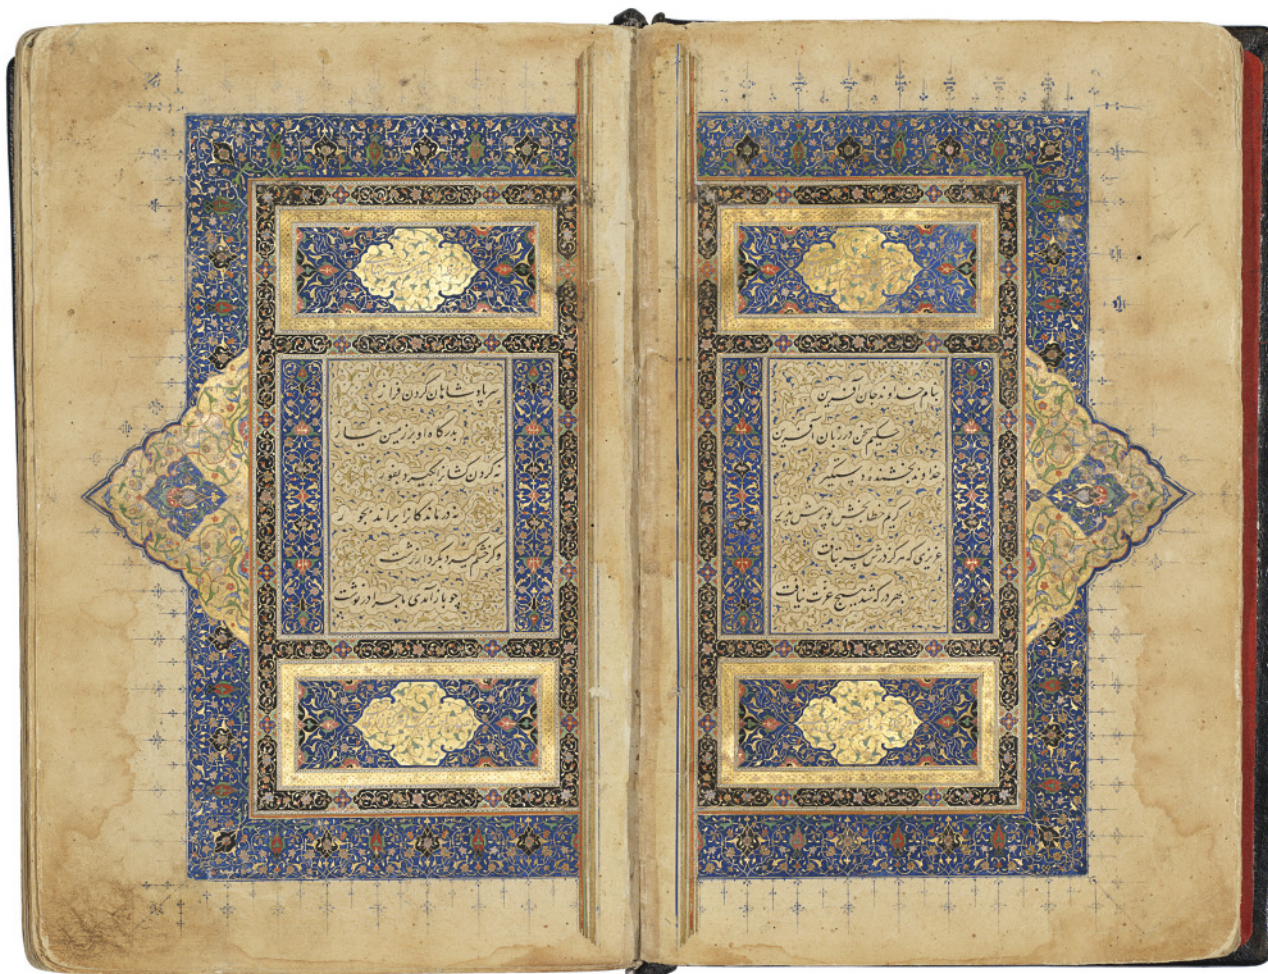 بنام خداوند جان آفرین
حکیم سخن در زبان آفرین
خداوند بخشنده دستگیر
کریم خطا بخش پوزش پذیر
عزیزی که هر کز درش سر بتافت
بهر در که شد هیچ عزت نیافت
سر پادشاهان گردن فراز
بدرگاه او بر زمین نیاز
نه گردن کشانرا بگیرد بفور
نه درماندگانرا براند بجور
وگر خشم گیرد بکردار زشت
چو بازآمدی ماجرا در نوشت